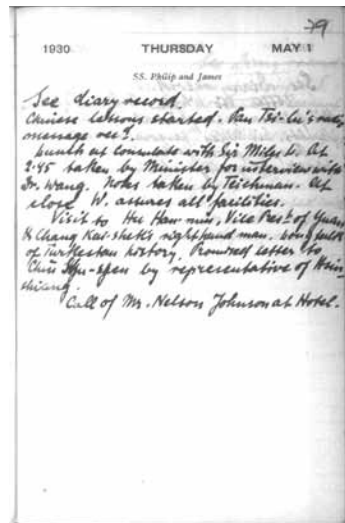 79
1930 THURSDAY MAY 1
SS. Philip and James
See diary record.
Chinese lessons started. Pan Tsi-lu's
message rec?.
Lunch at Consulate with Sir Miles L. At
2.45 taken by Minister for interview with
Dr. Wang. Notes taken by Teichman. At
close W. assures all facilities.
Visit to Hu Han-min, Vice Prest. of Yuan
& Chang Kai-shek's right hand man.
of Turkestan history. Promised letter to
Chin Shu-jen by representative of Hsin-
chiang.
Call of Mr. Nelson Johnson at Hotel.